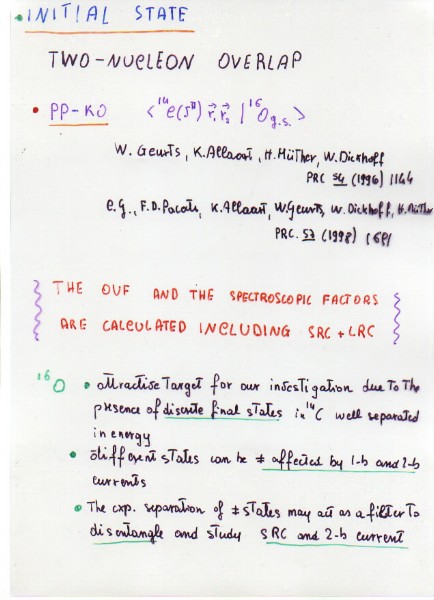 • INITIAL STATE
TWO-NUCLEON OVERLAP
• PP-KO <¹⁴C(Jᴨ) r⃗₁ r⃗₂ | ¹⁶O g.s.>
W. Geurts, K. Allaart, H. Müther, W. Dickhoff
PRC 54 (1996) 1144
C. G., F. D. Pacati, K. Allaart, W. Geurts, W. Dickhoff, H. Müther
PRC. 57 (1998) 1691
THE OVF AND THE SPECTROSCOPIC FACTORS
ARE CALCULATED INCLUDING SRC + LRC
¹⁶O • attractive Target for our investigation due To The
presence of discrete final states in ¹⁴C well separated
in energy
• different states can be ≠ affected by 1-b and 2-b
currents
• The exp. separation of ≠ states may act as a filter To
disentangle and study SRC and 2-b current